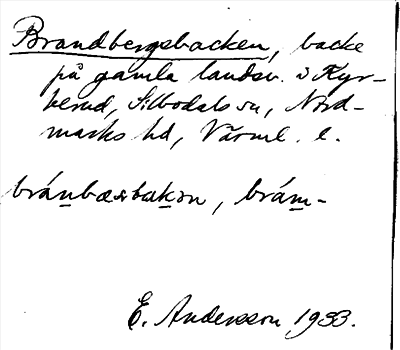 Brandbergsbacken, backe
på gamla landsv. i Kyr-
kerud, Silbodals sn, Nord-
marks hd, Värml. l.
brán̲bæ𝑟bak̲ən, brám̲-
E. Andersson 1933.